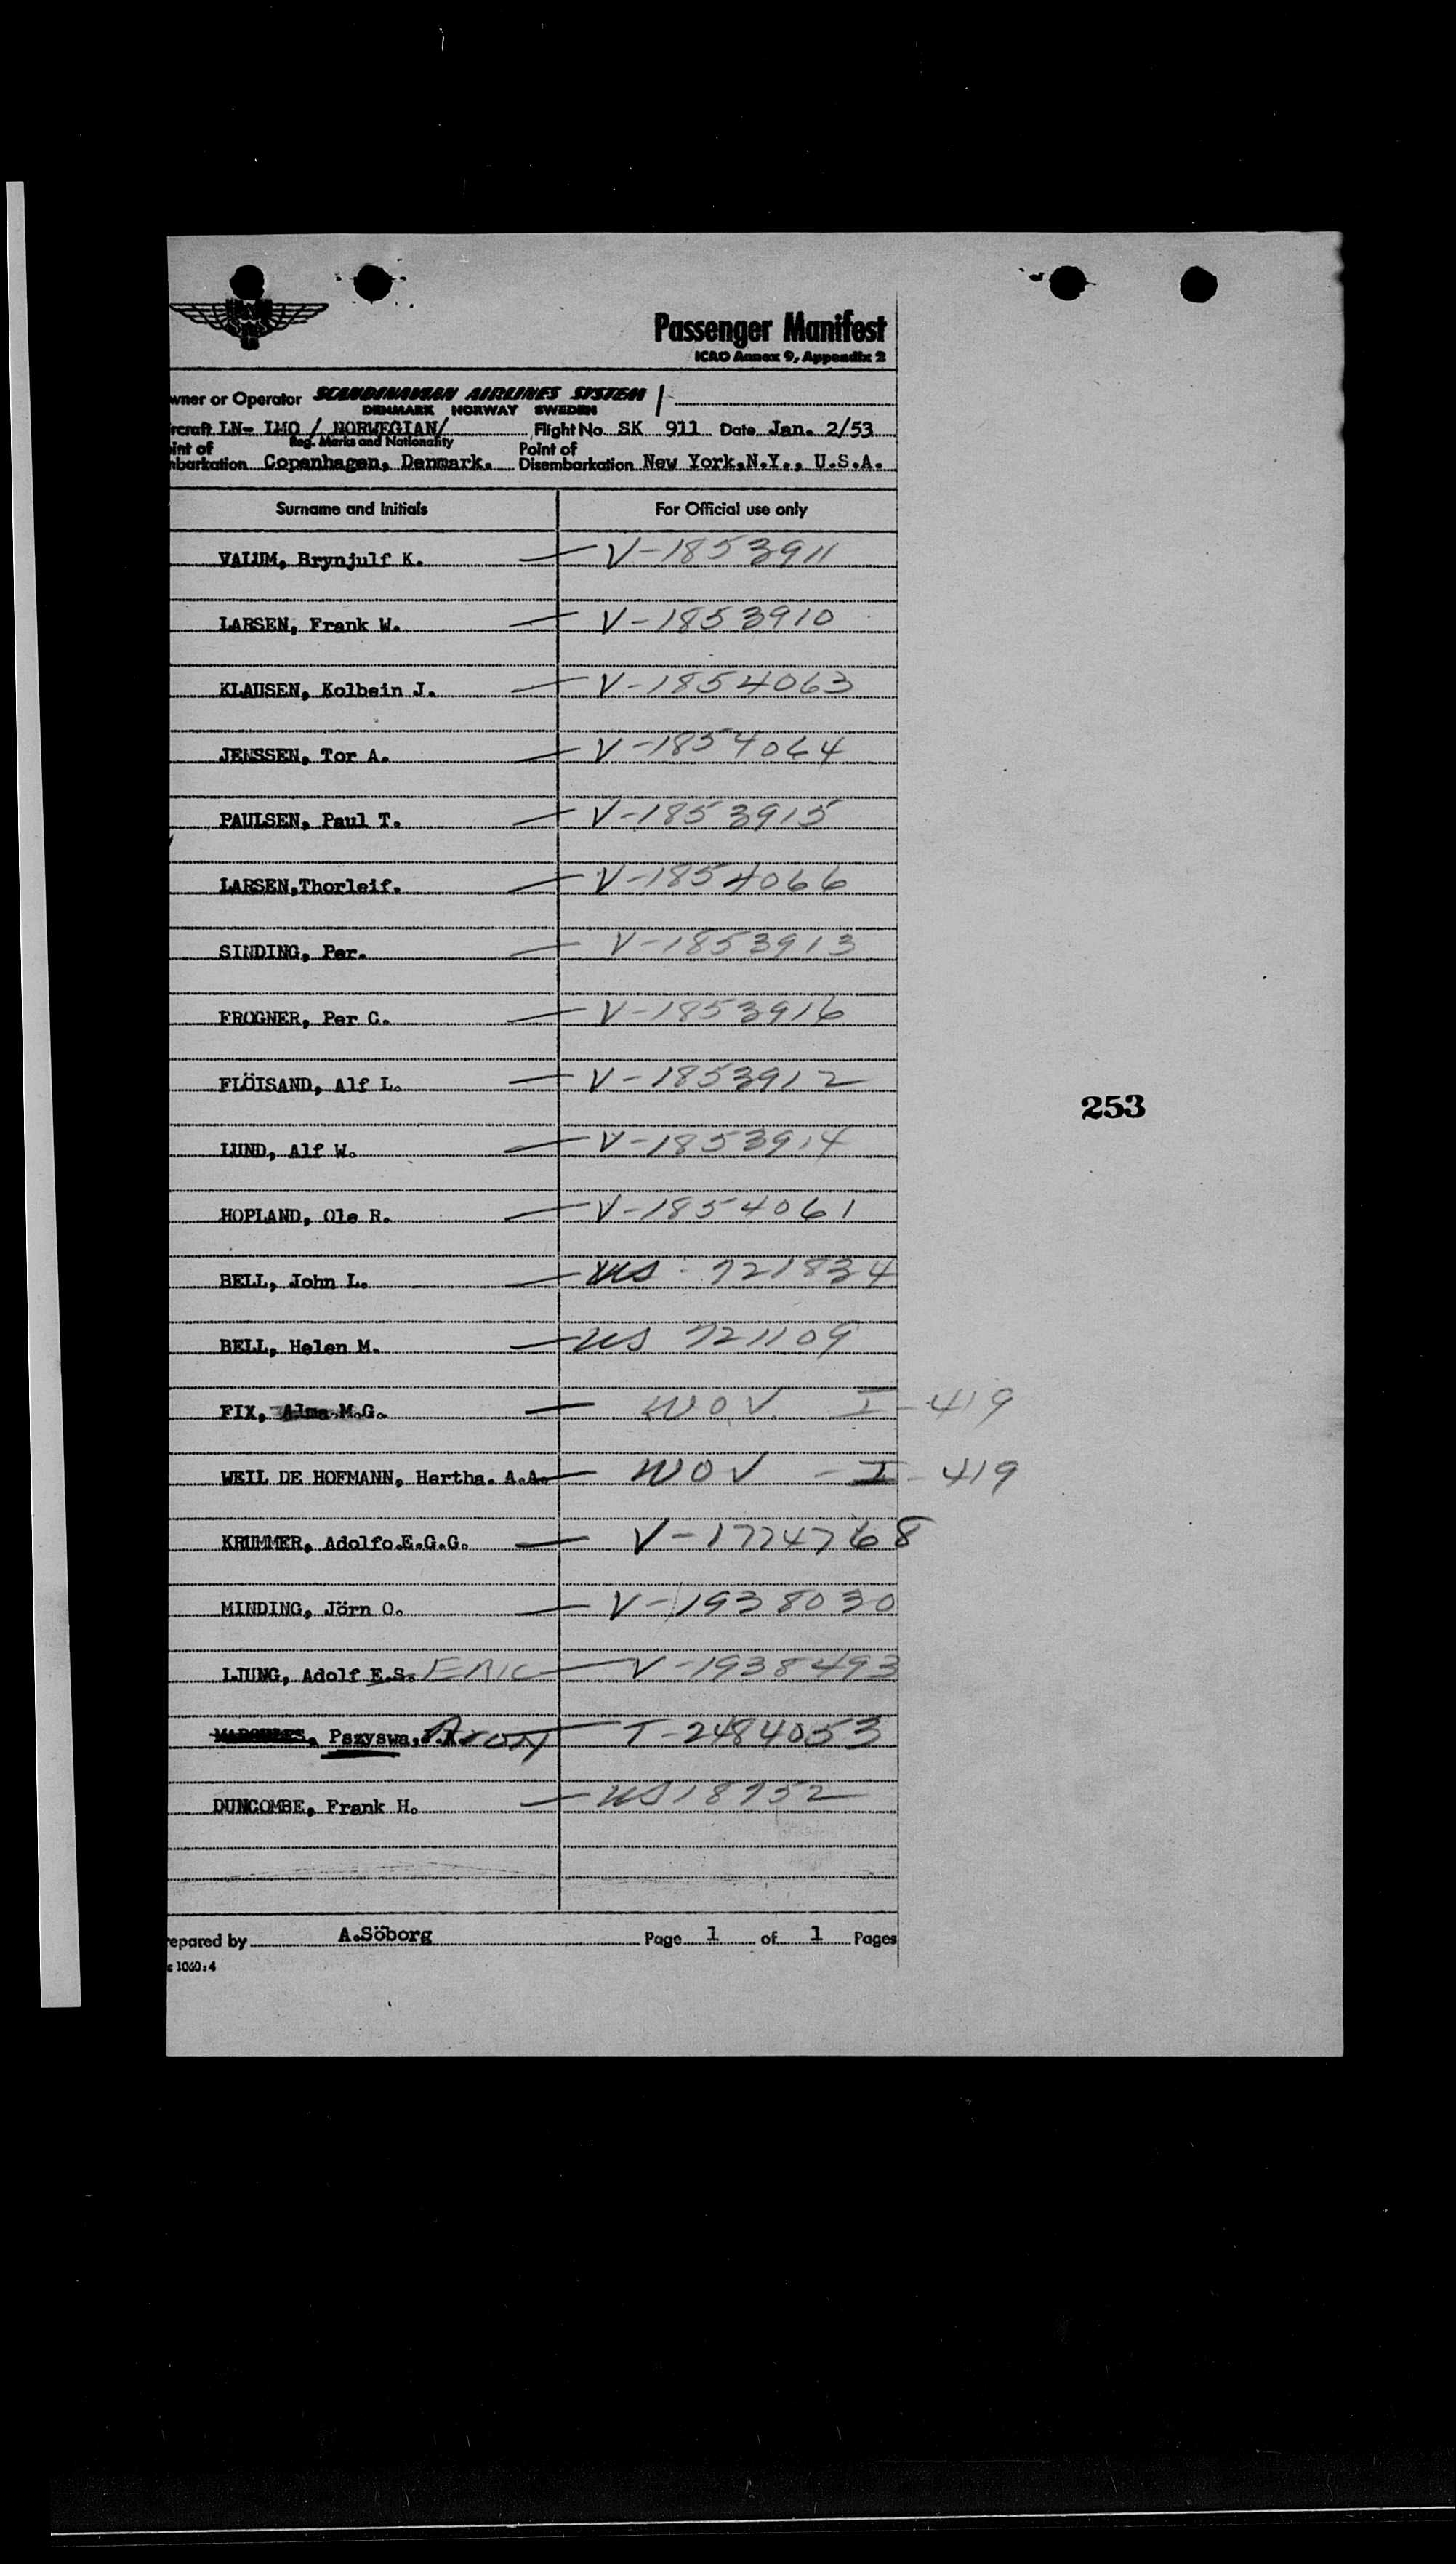 SAS
Passenger Manifest
ICAO Annex 9, Appendix 2
wner or Operator SCANDINAVIAN AIRLINES SYSTEM /
DENMARK NORWAY SWEDEN
rcraft LN- LMO / NORWEGIAN/ Flight No SK 911 Date Jan. 2/53
Reg. Marks and Nationality
int of Point of
mbarkation Copenhagen, Denmark. Disembarkation New York,N.Y., U.S.A.
Surname and Initials For Official use only
VALUM, Brynjulf K. V-1853911
LARSEN, Frank W. V-1853910
KLAUSEN, Kolbein J. V-1854063
JENSSEN, Tor A. V-1854064
PAULSEN, Paul T. V-1853915
LARSEN,Thorleif. V-1854066
SINDING, Per. V-1853913
FROGNER, Per C. V-1853916
FLÖISAND, Alf L. V-1853912
253
LUND, Alf W. V-1853914
HOPLAND, Ole R. V-1854061
BELL, John L. US - 721834
BELL, Helen M. US 721109
FIX, Alma.M.G. WOV I-419
WEIL DE HOFMANN, Hertha. A.A. WOV - I - 419
KRUMMER, Adolfo.E.G.G. V-1724768
MINDING, Jörn O. V-1938030
LJUNG, Adolf E.S. ERIC V-1938493
Pszyswa, T-2484053
DUNCOMBE, Frank H. US 18752
epared by A.Söborg Page 1 of 1 Pages
1060:4